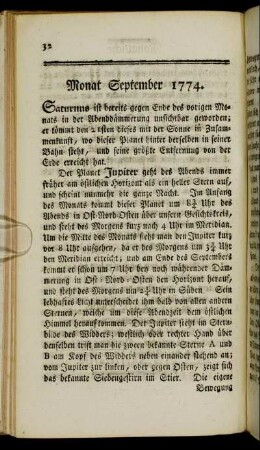 32
Monat September 1774.
Saturnus ist bereits gegen Ende des vorigen Mo-
nats in der Abenddämmerung unsichtbar geworden;
er kömmt den 2 1sten dieses mit der Sonne in Zusam-
menkunft, wo dieser Planet hinter derselben in seiner
Bahn steht, und seine größte Entfernung von der
Erde erreicht hat.
Der Planet Jupiter geht des Abends immer
früher am östlichen Horizont als ein heller Stern auf,
und scheint nunmehr die ganze Nacht. Im Anfang
des Monats kömmt dieser Planet um 8¾ Uhr des
Abends in Ost-Nord-Osten über unsern Gesichtskreis,
und steht des Morgens kurz nach 4 Uhr im Meridian.
Um die Mitte des Monats sieht man den Jupiter kurz
vor 8 Uhr aufgehen, da er des Morgens um 3¼ Uhr
den Meridian erreicht; und am Ende des Septembers
kommt er schon um 7 Uhr bey noch währender Däm-
merung in Ost-Nord-Osten den Horizont herauf,
und steht des Morgens um 2¼ Uhr in Süden. Sein
lebhaftes Licht unterscheidet ihn bald von allen andern
Sternen, welche um diese Abendzeit dem östlichen
Himmel heraufkommen. Der Jupiter steht im Stern-
bilde des Widders; westlich oder rechter Hand über
denselben trift man die zween bekannte Sterne A und
B am Kopf des Widders neben einander stehend an;
vom Jupiter zur linken, oder gegen Osten, zeigt sich
das bekannte Siebengestirn im Stier. Die eigene
Bewegung